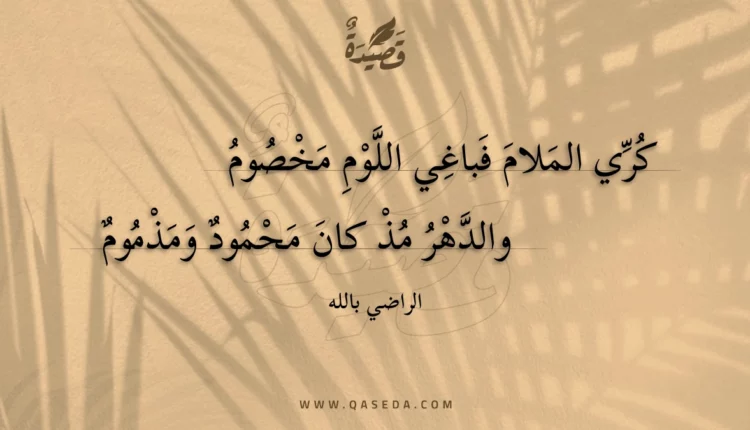 قَصِيدَةٌ
كُرِّي المَلامَ فَباغِي اللَّوْمِ مَخْصُومُ
والدَّهْرُ مُذْ كانَ مَحْمُودٌ وَمَذْمُومٌ
الراضي بالله
WWW.QASEDA.COM